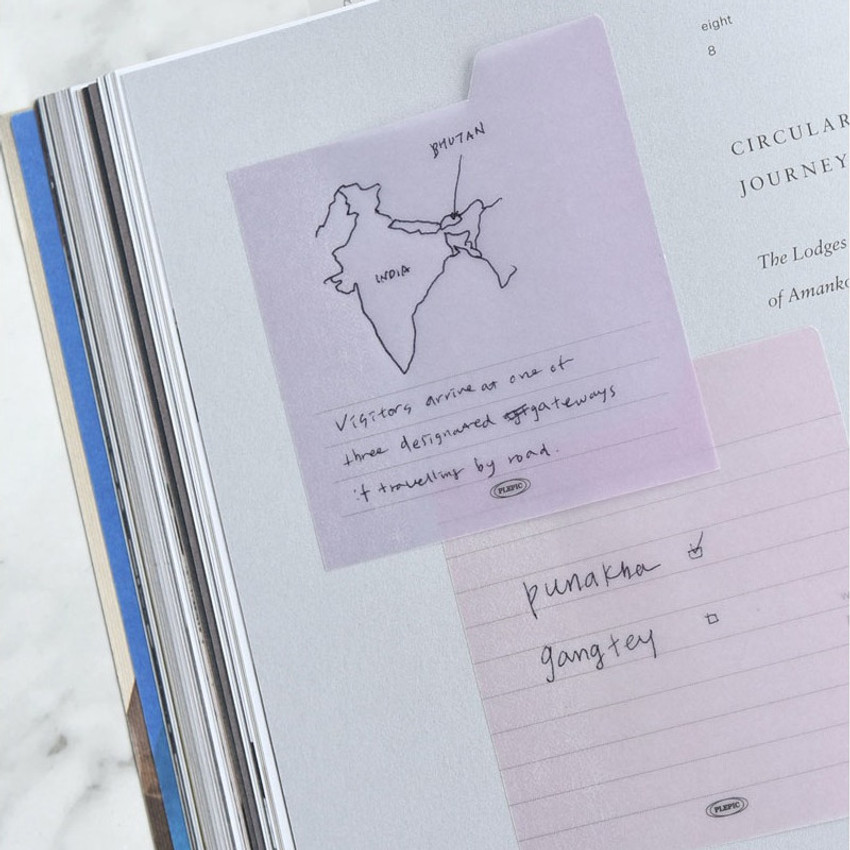 eight
8
CIRCULAR
JOURNEY
The Lodges
of Amanko
BHUTAN
INDIA
Visitors arrive at one of
three designated gateways
if travelling by road.
PLEPIC
punakha
gangtey
PLEPIC